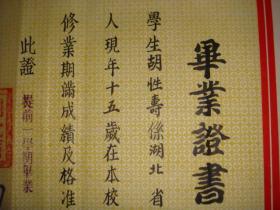 畢業證書
學生胡性壽係湖北省
人現年十五歲在本校
修業期滿成績及格准
此證
提前一學期畢業